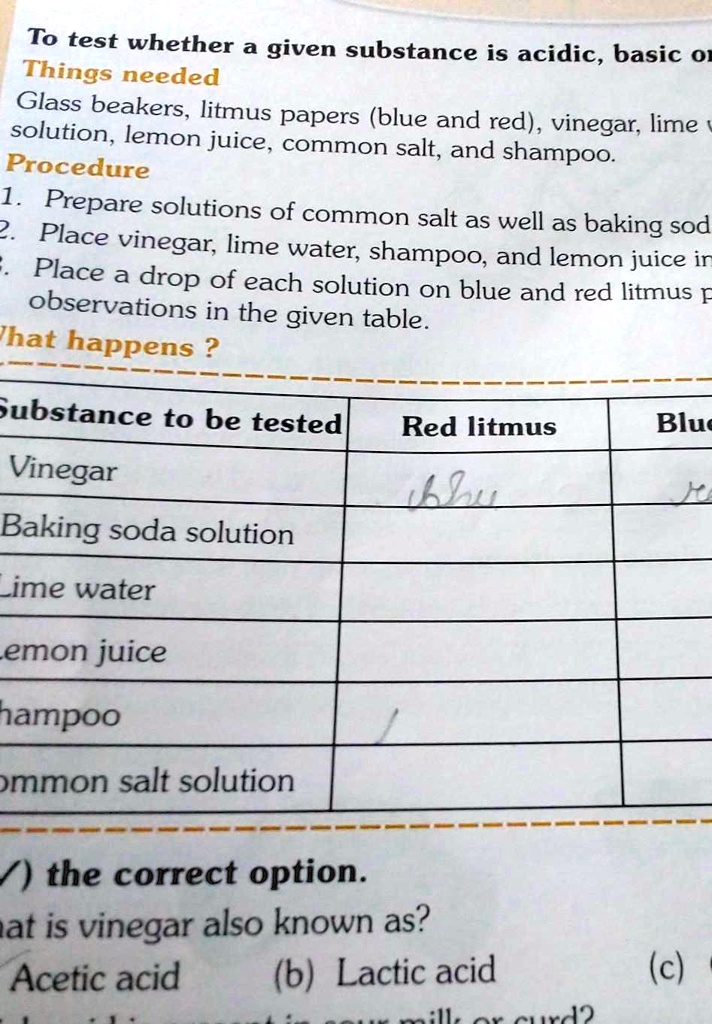 To test whether a given substance is acidic, basic or
Things needed
Glass beakers, litmus papers (blue and red), vinegar, lime
solution, lemon juice, common salt, and shampoo.
Procedure
1. Prepare solutions of common salt as well as baking sod
2. Place vinegar, lime water, shampoo, and lemon juice in
. Place a drop of each solution on blue and red litmus p
observations in the given table.
What happens ?
Substance to be tested Red litmus Blue
Vinegar
Baking soda solution
Lime water
emon juice
hampoo
ommon salt solution
) the correct option.
at is vinegar also known as?
Acetic acid (b) Lactic acid (c)
milk or curd?